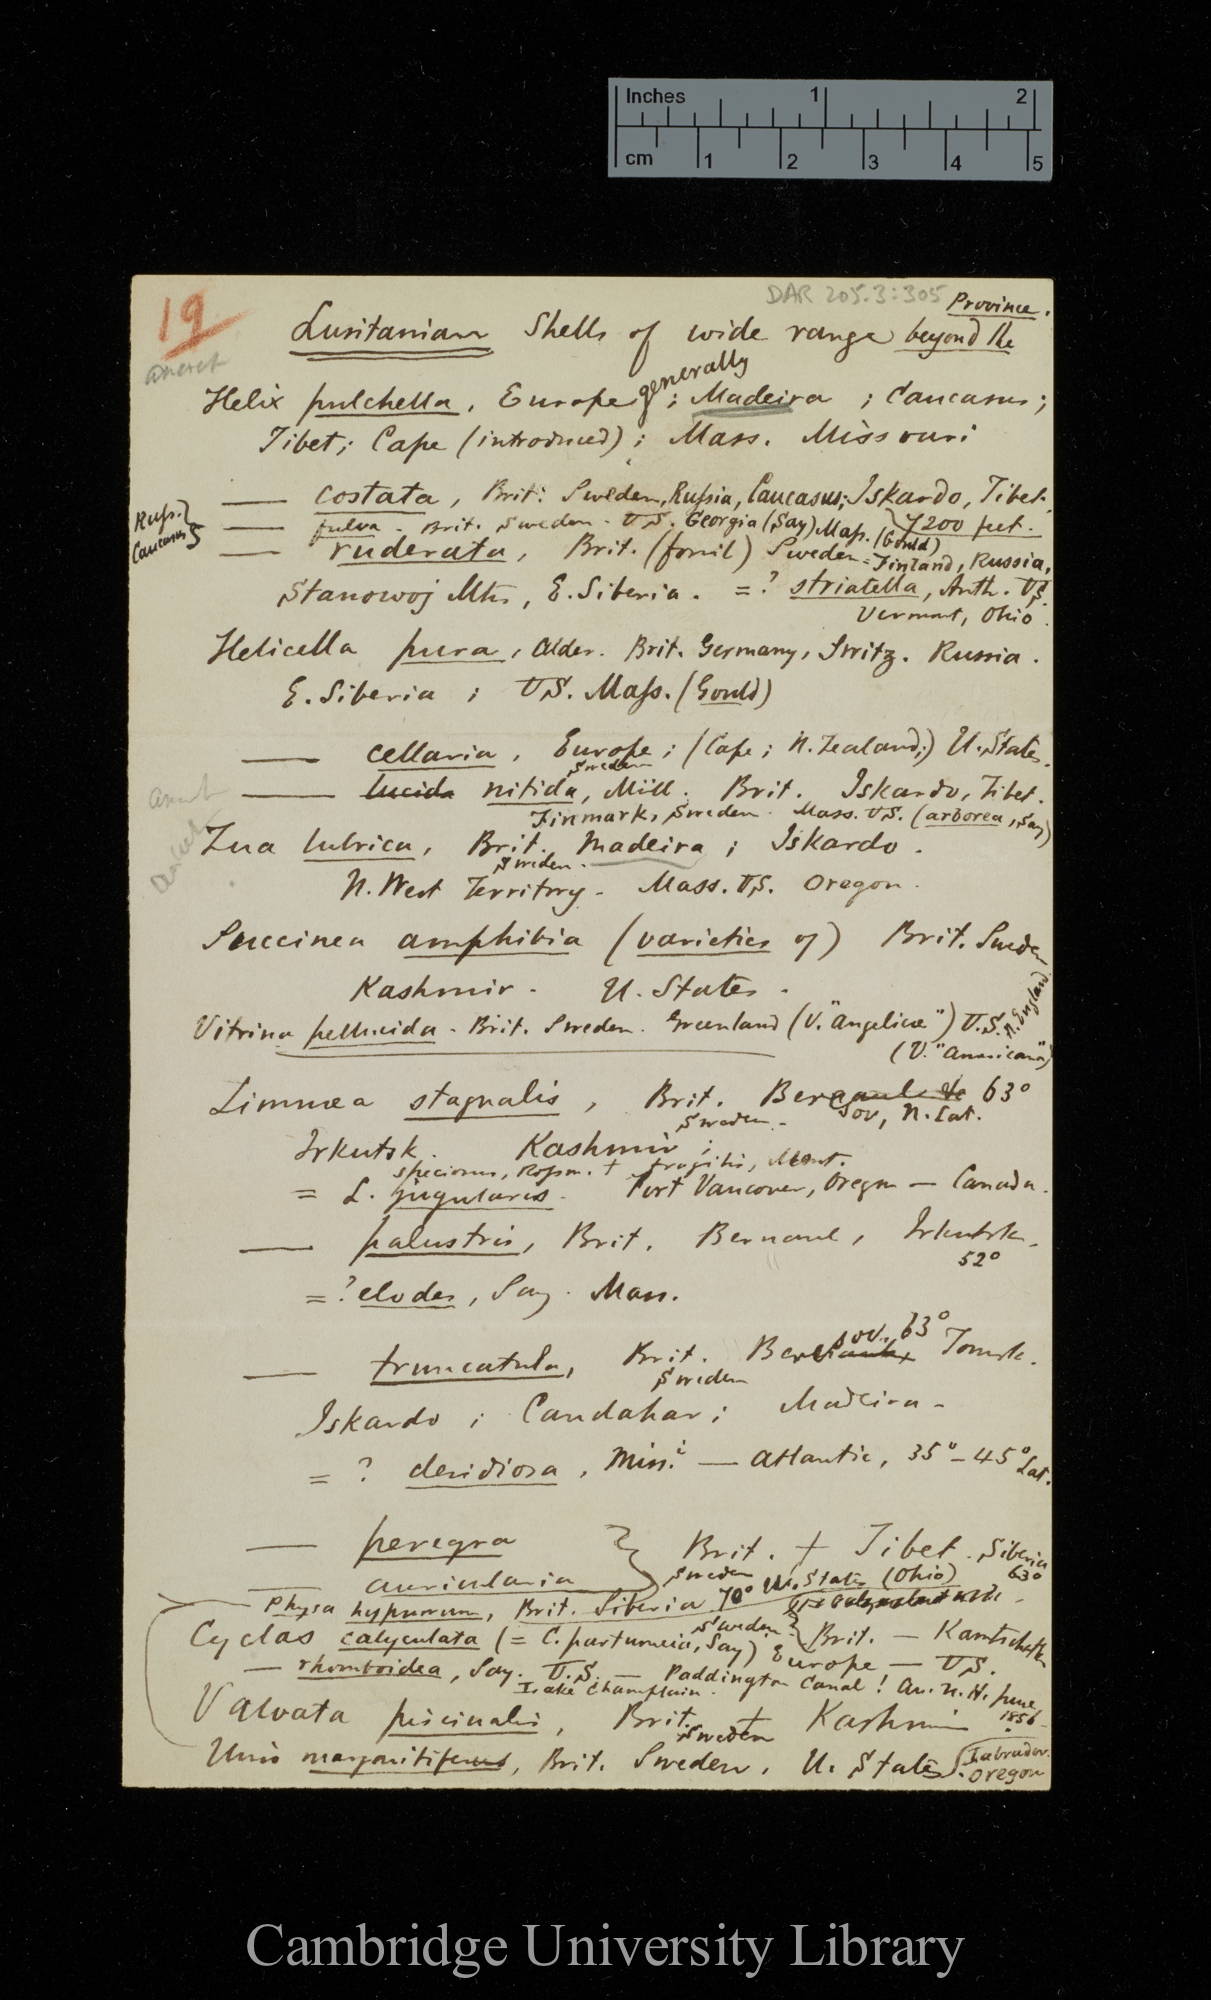 Inches 1 2
cm 1 2 3 4 5
19
DAR 205.3:305
Province.
Lusitanian Shells of wide range beyond the
generally
Helix pulchella, Europe ; Madeira ; Caucasus;
Tibet; Cape (introduced); Mass. Missouri
— costata, Brit: Sweden, Russia, Caucasus; Iskardo, Tibet.
Russ. Caucasus
— fulva. Brit. Sweden. U.S. Georgia (Say) Mass. (Gould) 7200 feet.
— ruderata, Brit. (fossil) Sweden = Finland, Russia,
Stanowoj Mts, E. Siberia. = ? striatella, Anth. U.S.
Vermont, Ohio.
Helicella pura, Alder. Brit. Germany, Switz. Russia.
E. Siberia ; U.S. Mass. (Gould)
— cellaria, Europe; (Cape; N. Zealand;) U. States.
Sweden
— lucida nitida, Müll. Brit. Iskardo, Tibet.
Finmark, Sweden. Mass. U.S. (arborea, Say)
Zua lubrica, Brit. Madeira ; Iskardo.
Sweden.
N. West Territory. Mass. U.S. Oregon.
Succinea amphibia (varieties of) Brit. Sweden
Kashmir. U. States.
Vitrina pellucida. Brit. Sweden. Greenland (V. "Angelicæ") U.S. N. England
(V. "Americana")
Limnæa stagnalis, Brit. 63°
Sweden. Sov, N. Lat.
Irkutsk. Kashmir ;
speciosus, Rossm. + fragilis, Mont.
= L. jugularis. Fort Vancouver, Oregon — Canada.
— palustris, Brit. Bernaul, Irkutsk.
52°
= ? elodes, Say. Mass.
sov. 63°
— truncatula, Brit. Tomsk.
Sweden
Iskardo ; Candahar ; Madeira.
= ? desidiosa, Miss.i — Atlantic, 35° - 45° Lat.
— peregra } Brit. + Tibet. Siberia
Sweden 63°
— auricularia
Physa hypnorum, Brit. Siberia 70° U. States (Ohio)
Sweden
Cyclas calyculata (= C. partumeia, Say) Brit. — Kamtschatka
Europe — U.S.
— rhomboidea, Say. U.S. — Paddington Canal! An. N. H. June 1856
Lake Champlain.
Valvata piscinalis, Brit. + Kashmir
Sweden
Unio margaritiferus, Brit. Sweden. U. States. (Labrador. Oregon
Cambridge University Library